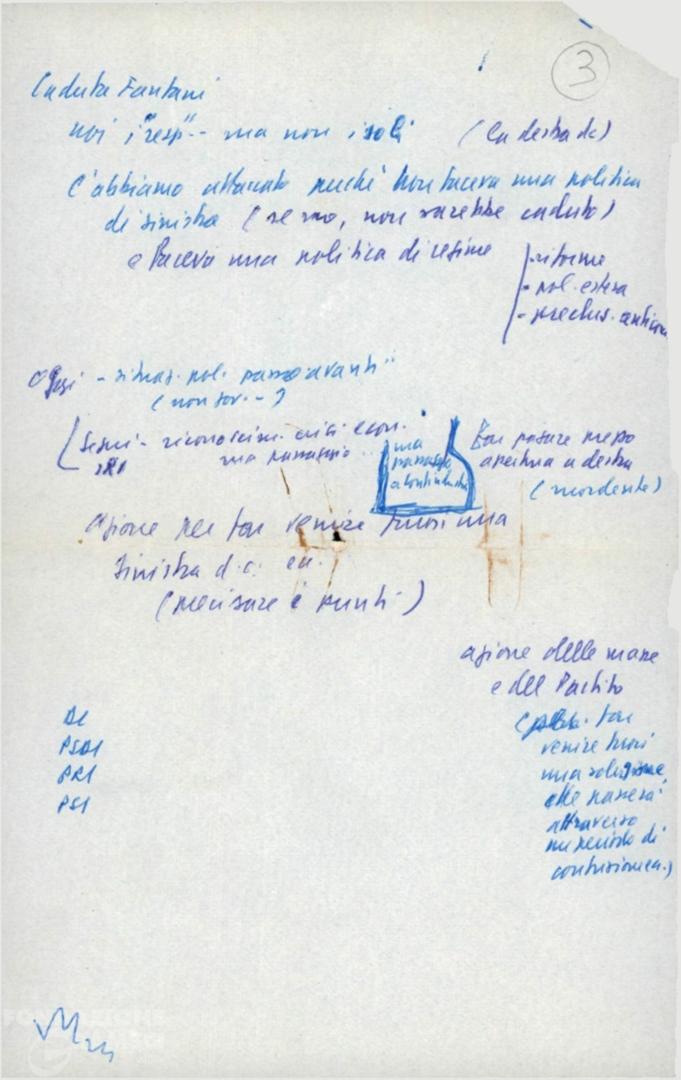 3
Caduta Fanfani
noi i "resp" -- ma non i soli (la destra dc)
L'abbiamo attaccato perché non faceva una politica
di sinistra (se no, non sarebbe caduto)
e faceva una politica di regime
- riforme
- pol. estera
- preclus. anticom
Oggi - situaz. pol. passo avanti"
(non sov. - )
riconoscim. crisi econ.
ma
ma
Far passare
apertura a destra
(mordente)
Azione per far venire fuori una
sinistra d.c. ecc.
(precisare i punti)
azione delle masse
e del Partito
far
venire fuori
una soluzione,
che passerà
attraverso
un periodo di
confusione
DC
PSDI
PRI
PSI
FONDAZIONE